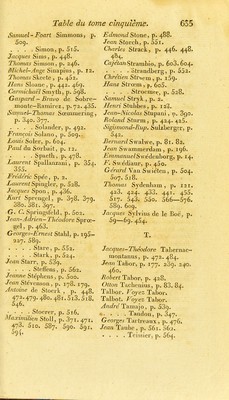 Table du tome cinquième. 655
Samuel-Foart Simmons, p.
509.
. . . . Simon, p. 515.
Jacques Sims, p. 448.
Thomas Simson, p. 246.
Michel-Ange Sinapius, p. 12.
Thomas Skeete, p. 451.
Hans Sloane, p. 442. 469.
Carmichaël Smyth, p. 598.
Gaspard-Bravo de Sobre-
monte-Ramirez, p. 72. 435.
Samuel-Thomas Sœmmering,
p. 390. 377.
. . . . Solander, p. 492.
François Solano, p. 509.
Louis Soler, p. 614.
Paul du Sorbait, p. 12.
. . . . Spaeth, p. 478.
Laurent Spallanzani, p. 354.
355.
Frédéric Spée, p. 2.
Laurent Spingler, p. 528.
Jacques Spon, p. 436.
Kurt Sprengel, p. 378. 379.
380. 381. 397.
G. C. Springsfeld, p. 502.
Jean-Adrien-Théodore Sprœ-
gel, p. 463.
Georges-Ernest Stahl, p. 195—
227. 589.
. . . . Stare, p. 552.
. . . . Stark, p. 524.
Jean Starr, p. 539.
. . . . Steffens, p. 562.
Jeanne Stéphens, p. 500.
Jean Stévenson, p. 178. 179.
Antoine de Stoerk, p. 448.
472. 479. 480. 481. 513. 518.
546.
. . . . Stoerer, p. 516.
Maximilien Stoll, p. 371. 471.
473. 510. 587. 590. 591.
594.
Edmond Stone, p. 488.
Jean Storch, p. 551.
Charles Strack, p. 446. 448.
484.
Cajétan Strambio, p. 603. 604.
. . . . Strandberg, p. 552.
Chrétien Strœm, p. 159.
Hans Strœm, p. 605.
. . . . Struemer, p. 528.
Samuel Stryk, p. 2.
Henri Stubbes, p. 128.
Jean-Nicolas Stupani, p. 390.
Roland Sturm, p. 424. 425.
Sigismond-Rup. Sulzberger, p.
541.
Bernard Swalwe, p. 81. 82.
Jean Swammerdam, p. 196.
Emmanuel Swédenborg, p. 14.
F. Swédiaur, p. 450.
Gérard Van Swiéten, p. 504.
507. 518.
Thomas Sydenham, p. 121.
423. 424. 433. 441. 455.
517. 543. 550. 566—576.
589. 609.
Jacques Sylvius de le Boë, p.
59—69. 454.
T.
Jacques-Théodore Tabernae-
montanus, p. 472. 484.
Jean Tabor, p. 177. 239. 240.
460.
Robert Tabor, p. 428.
Otton Tachenius, p. 83. 84.
Talbor. Voyez Tabor.
Talbot. Voyez Tabor.
André Tamajo, p. 539.
. . . . Tandon, p. 547.
Georges Tartreaux, p. 476.
Jean Taube, p. 561. 562.
. . . . Teissier, p. 564.